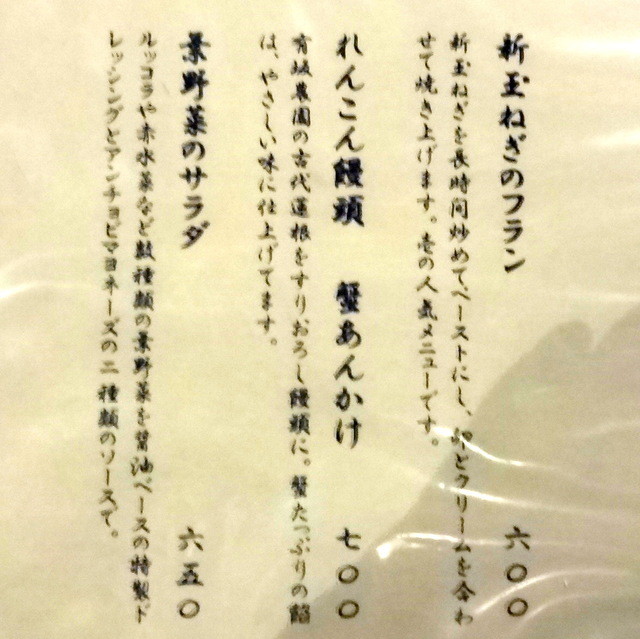 新玉ねぎのフラン 六〇〇
新玉ねぎを長時間炒めてペーストにし、卵とクリームを合わ
せて焼き上げます。壱の人気メニューです。
れんこん饅頭 蟹あんかけ 七〇〇
有坂農園の古代蓮根をすりおろし饅頭に。蟹たっぷりの餡
は、やさしい味に仕上げてます。
景野菜のサラダ 六五〇
ルッコラや赤水菜など数種類の景野菜を醤油ベースの特製ド
レッシングとアンチョビマヨネーズの二種類のソースで。